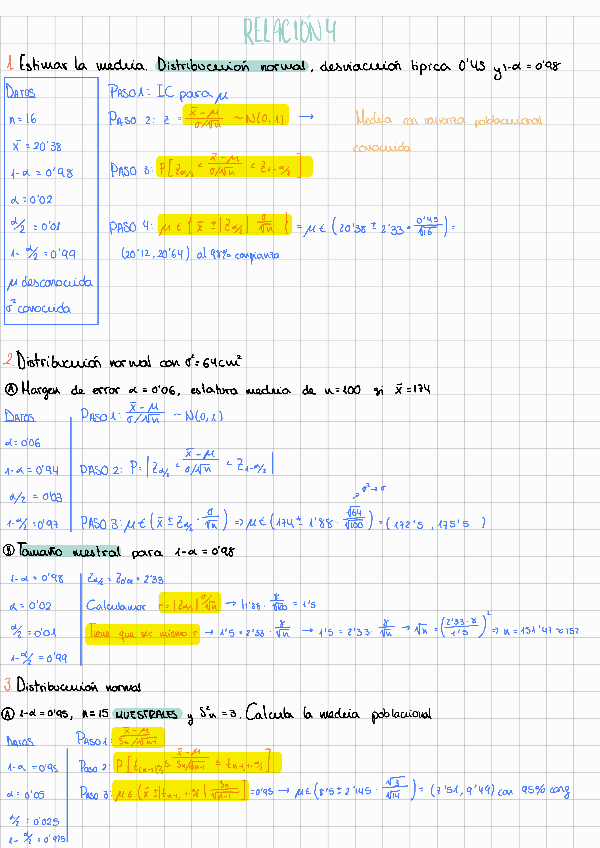 RELACIÓN 4
1. Estimar la media. Distribución normal, desviación típica 0'45 y 1-α = 0'98
DATOS
n = 16
x̄ = 20'38
1-α = 0'98
α = 0'02
α/2 = 0'01
1- α/2 = 0'99
μ desconocida
σ² conocida
PASO 1: IC para μ
PASO 2: z = (x̄ - μ)/(σ/√n) ~ N(0,1) →
Media con varianza poblacional
conocida
PASO 3: P[z α/2 < (x̄ - μ)/(σ/√n) < z 1-α/2]
PASO 4: μ ∈ { x̄ ± |z α/2| σ/√n } = μ ∈ (20'38 ± 2'33 · 0'45/√16) =
(20'12, 20'64) al 98% confianza
2. Distribución normal con σ² = 64cm²
Ⓐ Margen de error α = 0'06, estatura media de n=100 si x̄ = 174
DATOS
α = 0'06
1-α = 0'94
α/2 = 0'03
1-α/2 = 0'97
PASO 1: (x̄ - μ)/(σ/√n) ~ N(0,1)
PASO 2: P = |z α/2 < (x̄ - μ)/(σ/√n) < z 1-α/2|
σ² → σ
PASO 3: μ ∈ (x̄ ± z α/2 · σ/√n) ⇒ μ ∈ (174 ± 1'88 · √64/√100) = (172'5, 175'5 )
Ⓑ Tamaño mestral para 1-α = 0'98
1-α = 0'98
α = 0'02
α/2 = 0'01
1-α/2 = 0'99
z α/2 = z 0'01 = 2'33
Calculamos r = |z α/2| σ/√n → |1'88 · 8/√100 = 1'5
Tiene que ser mismo r → 1'5 = 2'33 · 8/√n → 1'5 = 2'33 · 8/√n → √n = (2'33 · 8/1'5)² ⇒ n = 151'47 ≈ 152
3. Distribución normal
Ⓐ 1-α = 0'95, n = 15 MUESTRALES y S²n = 3. Calcula la media poblacional
DATOS
1-α = 0'95
α = 0'05
α/2 = 0'025
1- α/2 = 0'975
PASO 1: (x̄ - μ)/(Sn/√n-1)
PASO 2: P[t (n-1) α/2 ≤ (x̄ - μ)/(Sn/√n-1) ≤ t n-1, 1-α/2]
PASO 3: μ ∈ (x̄ ± |t n-1, 1-α/2| Sn/√n-1] = 0'95 → μ ∈ (8'5 ± 2'145 · √3/√14) = (7'51, 9'49) con 95% conf